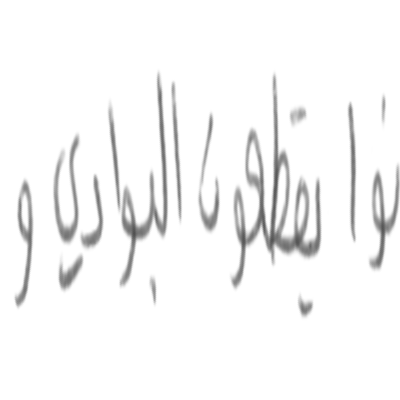 نوا يقطعون البوادي و